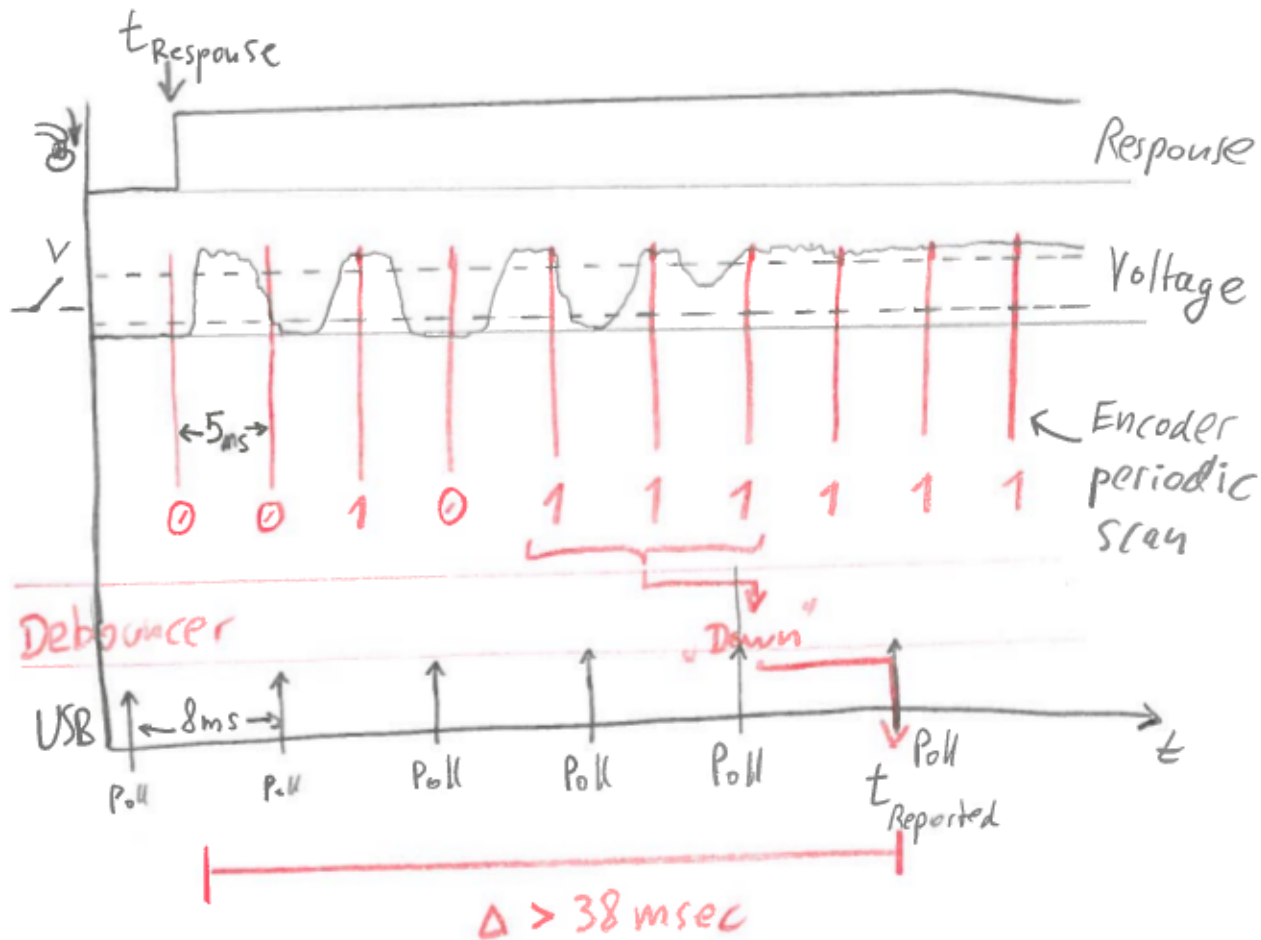 t Response
Response
V
Voltage
5ms
Encoder
periodic
scan
0 0 1 0 1 1 1 1 1 1
Debouncer
„Down"
USB
8ms
Poll Poll Poll Poll Poll Poll
t
t Reported
Δ > 38 msec